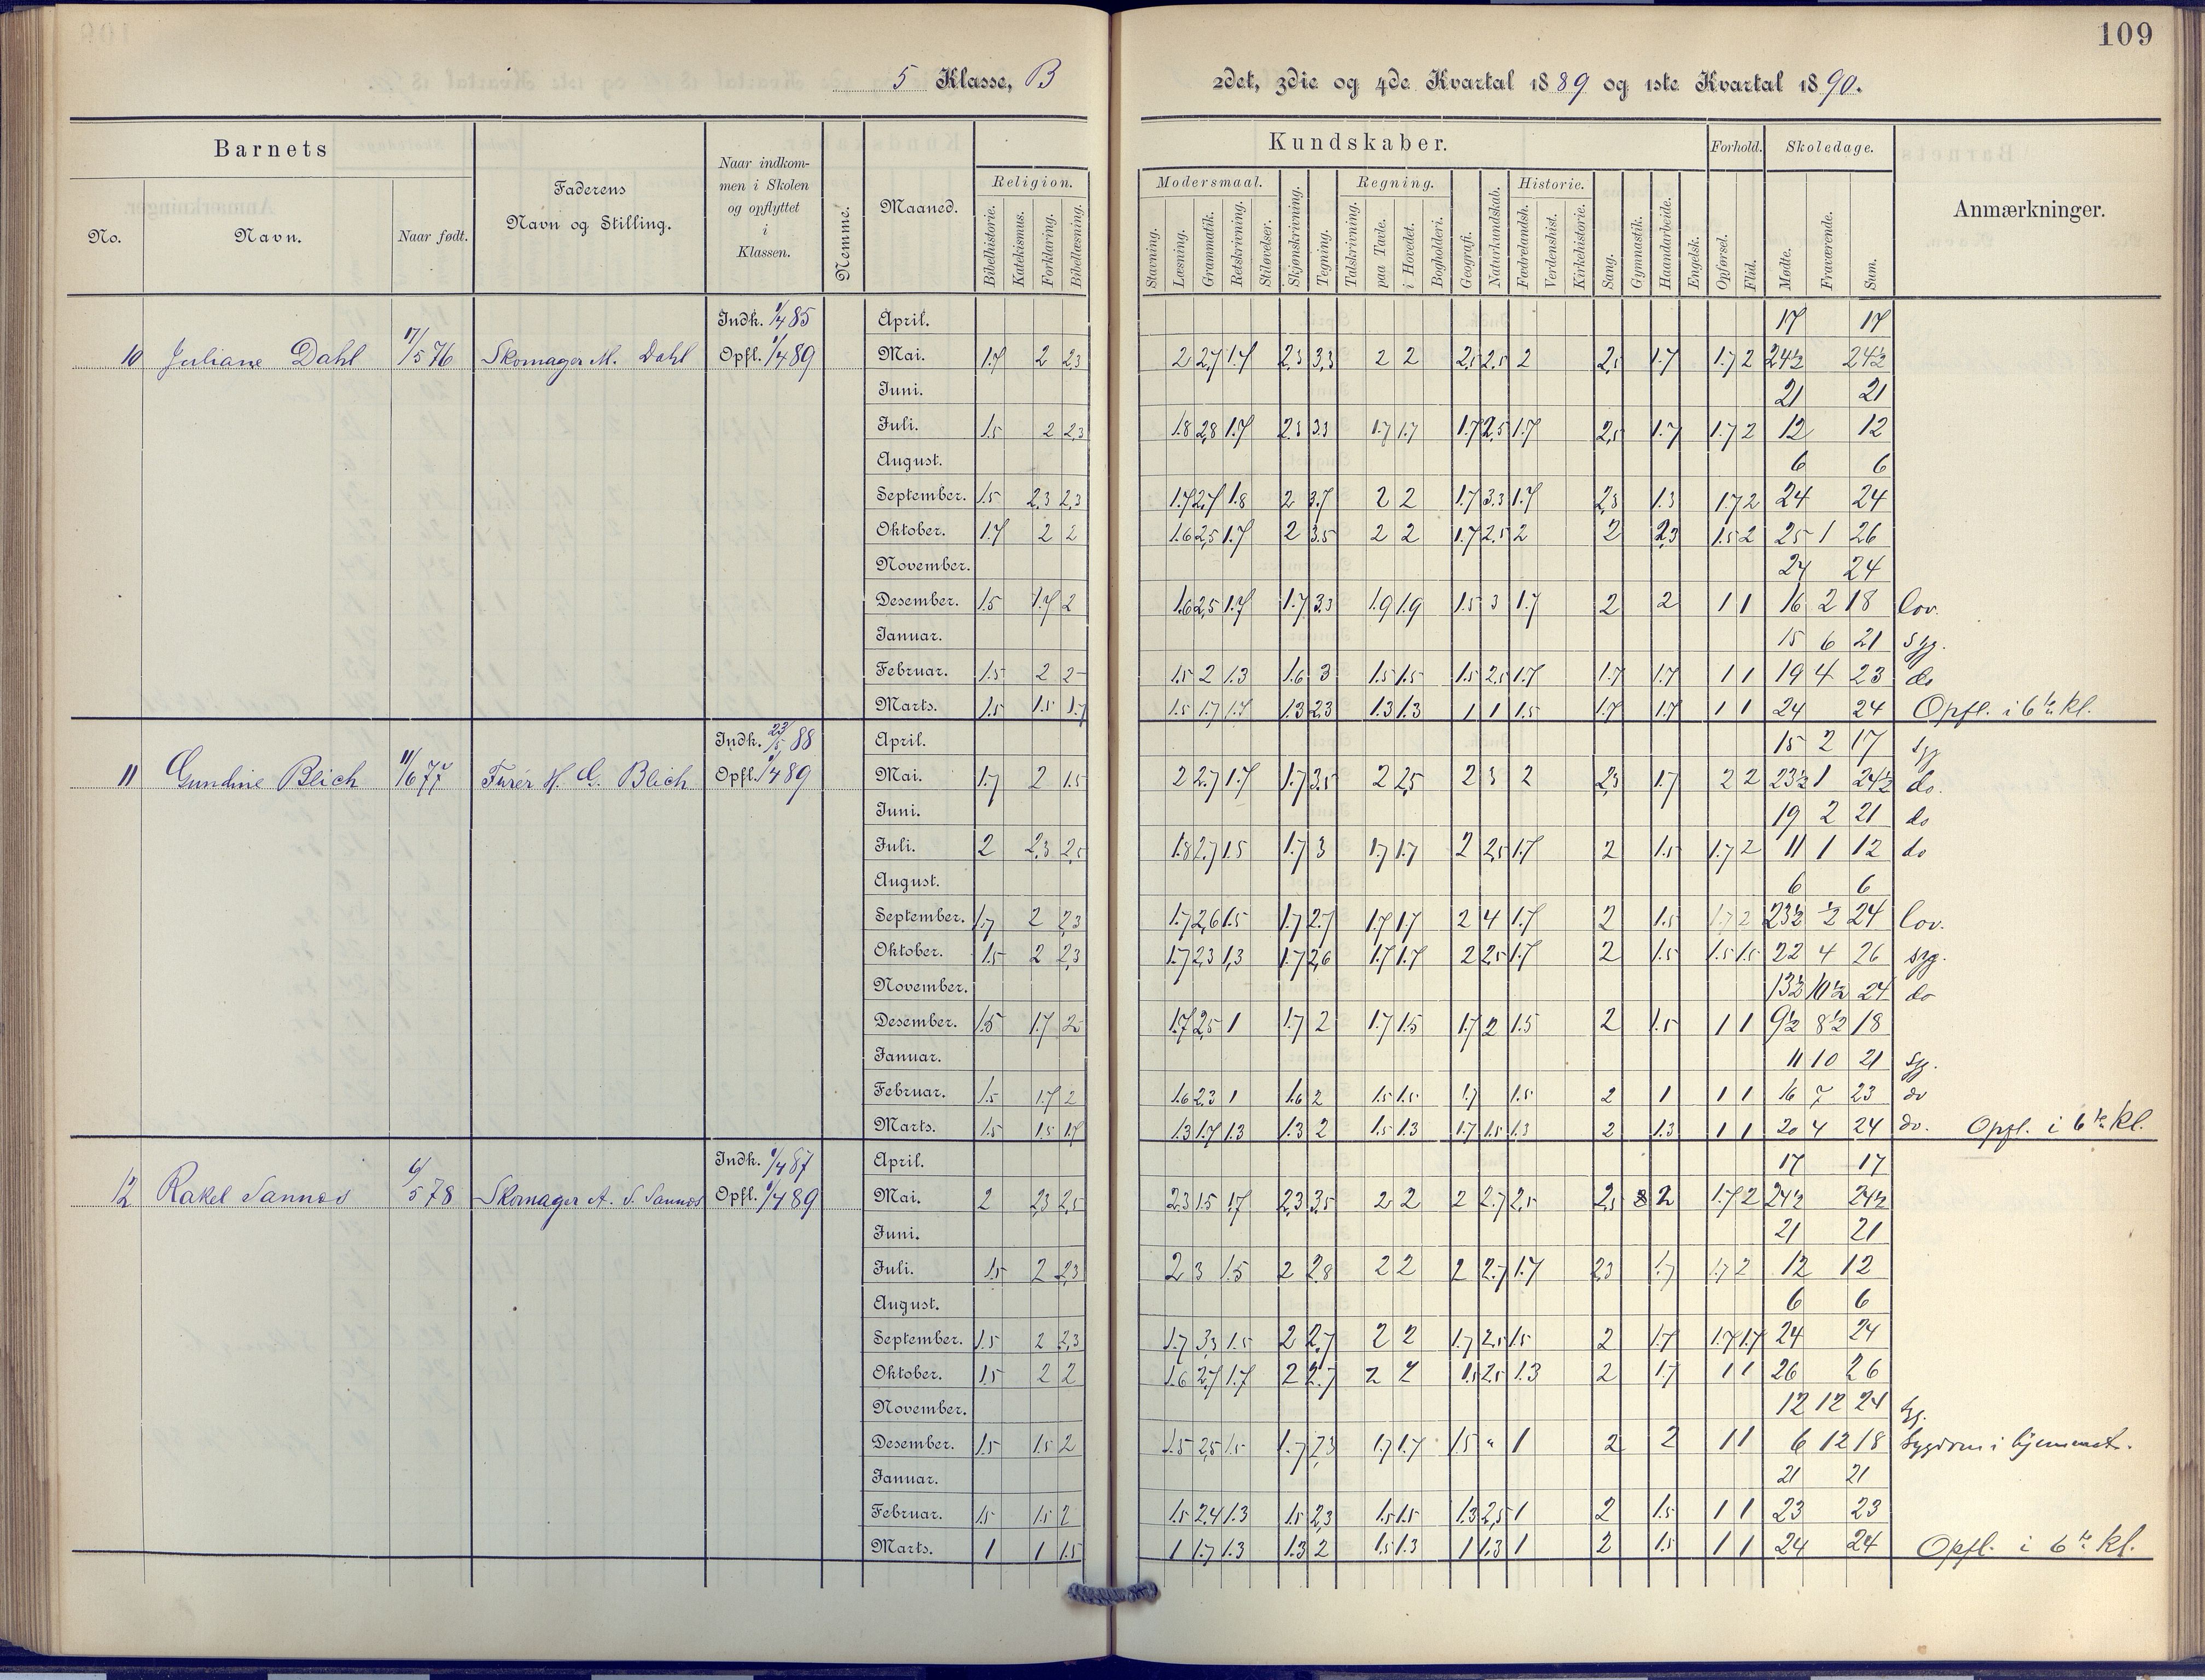 109
5 Klasse, B
2det, 3die og 4de Kvartal 1889 og 1ste Kvartal 1890.
Barnets
Faderens Navn og Stilling.
Naar indkom-
men i Skolen
og opflyttet
i
Klassen.
Nemme.
Maaned.
Kundskaber.
Forhold.
Skoledage.
Anmærkninger.
No.
Navn.
Naar født.
Religion.
Modersmaal.
Regning.
Historie.
Bibelhistorie. Katekismus. Forklaring. Bibellæsning.
Stavning. Læsning. Grammatik. Retskrivning. Stiløvelser. Skjønskrivning. Tegning. Talskrivning. paa Tavle. i Hovedet. Bogholderi. Geografi. Naturkundskab. Fædrelandsh. Verdenshist. Kirkehistorie. Sang. Gymnastik. Haandarbeide. Engelsk. Opførsel. Flid. Mødte. Fraværende. Sum.
Indk. 1/4 85 April. 17 17
10 Juliane Dahl 17/5 76 Skomager M. Dahl Opfl. 1/4 89 Mai. 1.7 2 2,3 2 2,7 1.7 2.3 3,3 2 2 2,5 2.5 2 2,5 1.7 1.7 2 24½ 24½
Juni. 21 21
Juli. 1.5 2 2,3 1.8 2,8 1.7 2.3 3.3 1.7 1.7 1.7 2,5 1.7 2,5 1.7 1.7 2 12 12
August. 6 6
September. 1.5 2,3 2,3 1.7 2,7 1.8 2 3,7 2 2 1.7 3.3 1.7 2,3 1.3 1.7 2 24 24
Oktober. 1.7 2 2 1.6 2,5 1.7 2 3.5 2 2 1.7 2.5 2 2 2,3 1.5 2 25 1 26
November. 24 24
Desember. 1.5 1.7 2 1.6 2,5 1.7 1.7 3.3 1.9 1.9 1.5 3 1.7 2 2 1 1 16 2 18 lov.
Januar. 15 6 21 syg.
Februar. 1.5 2 2 1.5 2 1.3 1.6 3 1.5 1.5 1.5 2.5 1.7 1.7 1.7 1 1 19 4 23 do
Marts. 1.5 1.5 1.7 1.5 1.7 1.7 1.3 2,3 1.3 1.3 1 1 1.5 1.7 1.7 1 1 24 24 Opfl. i 6te kl.
Indk. 23/5 88 April. 15 2 17 syg
11 Gundine Blich 11/6 77 Furér H. G. Blich Opfl. 1/4 89 Mai. 1.7 2 1.5 2 2.7 1.7 1.7 3.5 2 2,5 2 3 2 2,3 1.7 2 2 23½ 1 24½ do.
Juni. 19 2 21 do
Juli. 2 2,3 2,5 1.8 2,7 1.5 1.7 3 1.7 1.7 2 2,5 1.7 2 1.5 1.7 2 11 1 12 do
August. 6 6
September. 1.7 2 2,3 1.7 2,6 1.5 1.7 2.7 1.7 1.7 2 4 1.7 2 1.5 1.7 2 23½ ½ 24 lov.
Oktober. 1.5 2 2,3 1.7 2,3 1,3 1.7 2,6 1.7 1.7 2 2,5 1.7 2 1.5 1.5 1.5 22 4 26 syg.
November. 13½ 10½ 24 do
Desember. 1.5 1.7 2 1.7 2,5 1 1.7 2 1.7 1.5 1.7 2 1.5 2 1.5 1 1 9½ 8½ 18
Januar. 11 10 21 syg.
Februar. 1.5 1.7 2 1.6 2.3 1 1.6 2 1.5 1.5 1.7 1.5 2 1 1 1 16 7 23 do
Marts. 1.5 1.5 1.7 1.3 1.7 1.3 1.3 2 1.5 1.3 1.7 1.5 1.3 2 1.3 1 1 20 4 24 do. Opfl. i 6te kl.
Indk. 1/4 87 April. 17 17
12 Rakel Sannes 6/5 78 Skomager A. S. Sannes Opfl. 1/4 89 Mai. 2 2,3 2,5 2.3 1.5 1.7 2,3 3.5 2 2 2 2.7 2,5 2,5 2 1.7 2 24½ 24½
Juni. 21 21
Juli. 1.5 2 2,3 2 3 1.5 2 2.8 2 2 2 2.7 1.7 2,3 1.7 1.7 2 12 12
August. 6 6
September. 1.5 2 2,3 1.7 3,3 1.5 2 2,7 2 2 1.7 2,5 1.5 2 1.7 1.7 1.7 24 24
Oktober. 1.5 2 2 1.6 2,7 1.7 2 2.7 2 2 1.5 2.5 1.3 2 1.7 1 1 26 26
November. 12 12 24 syg.
Desember. 1.5 1.5 2 1.5 2,5 1.5 1.7 2,3 1.7 1.7 1.5 " 1 2 2 1 1 6 12 18 Sygdom i hjemmet.
Januar. 21 21
Februar. 1.5 1.5 2 1.5 2,4 1.3 1.5 2,3 1.5 1.5 1.3 2,5 1 2 1.5 1 1 23 23
Marts. 1 1 1.5 1 1.7 1.3 1.3 2 1.5 1.3 1 1.3 1 2 1.5 1 1 24 24 Opfl. i 6te kl.